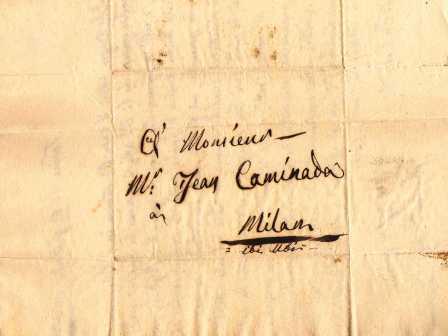 A' Monsieur
Mr. Jean Caminada
à
Milan